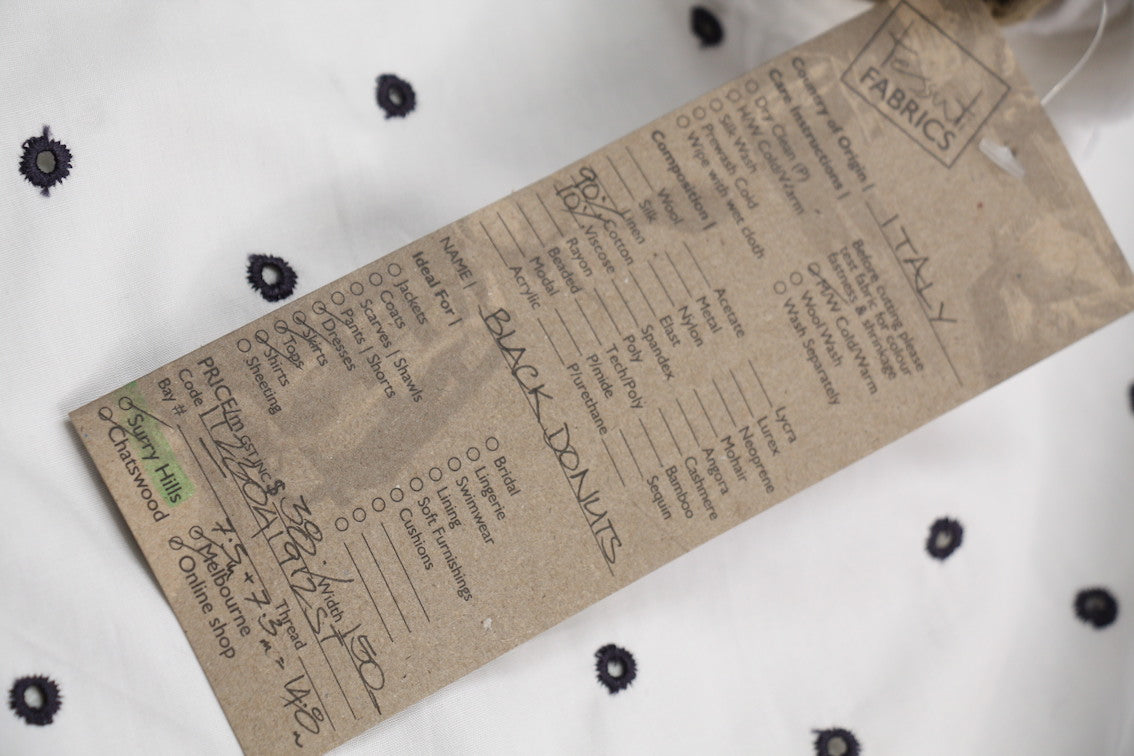 FABRICS
Country of Origin | ITALY
Care Instructions |
Dry Clean (P)
H/W Cold/Warm
Silk Wash
Prewash Cold
Wipe with wet cloth
Before cutting please
test fabric for colour
fastness & shrinkage
M/W Cold/Warm
Wool Wash
Wash Separately
Composition |
Wool
Silk
Linen
90% Cotton
10% Viscose
Rayon
Beaded
Modal
Acrylic
Acetate
Metal
Nylon
Elast
Spandex
Poly
Tech/Poly
P/mide
P/urethane
Lycra
Lurex
Neoprene
Mohair
Angora
Cashmere
Bamboo
Sequin
NAME | BLACK DONUTS
Ideal For |
Jackets
Coats
Scarves | Shawls
Pants | Shorts
Dresses
Skirts
Tops
Shirts
Sheeting
Bridal
Lingerie
Swimwear
Lining
Soft Furnishings
Cushions
PRICE/m GST INC $ 38 Width 150
Code |
Bay # Thread
7.5m + 7.3m =
Surry Hills
Chatswood
Melbourne
Online shop